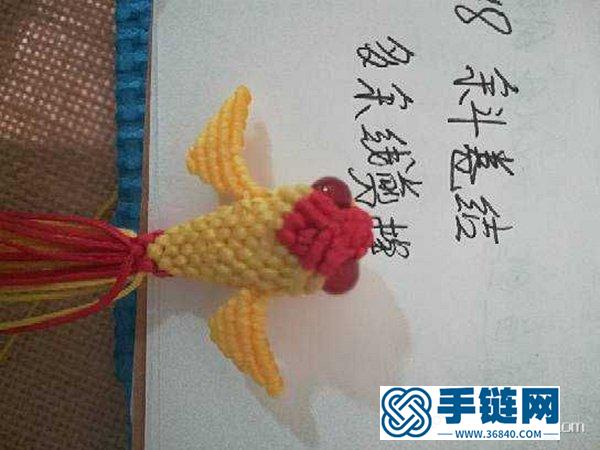 18 斜卷结
多余线剪掉
手链网
WWW.36840.COM